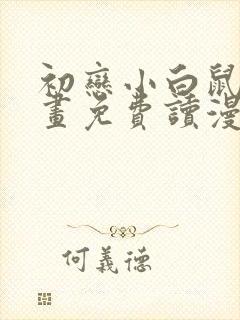 初戀小白鼠
畫免費讀漫
何義德